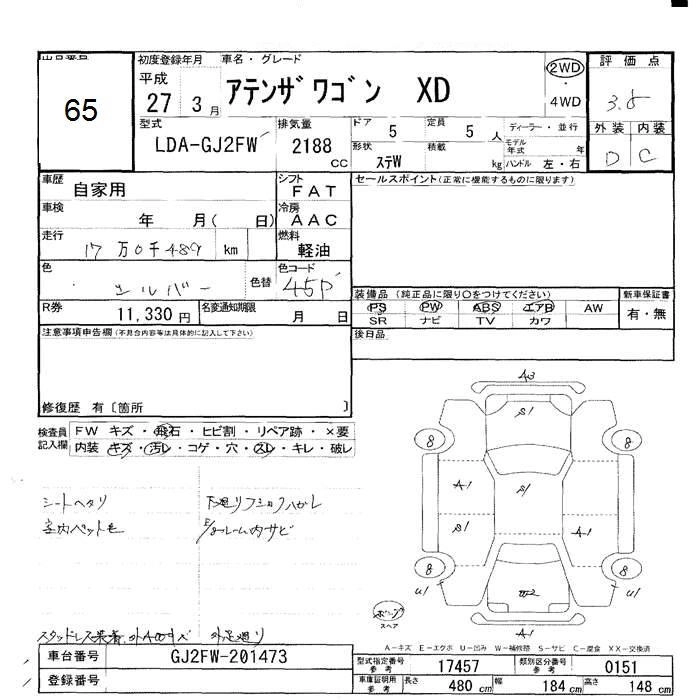 65
初度登録年月 車名・グレード
平成
27 3月
アテンザワゴン XD
2WD
・
4WD
評価点
3.5
外装 内装
D C
型式
LDA-GJ2FW
排気量
2188 CC
ドア 5
定員 5 人
形状
ステW
積載 kg
ディーラー・並行
モデル年式 年
ハンドル 左・右
車歴 自家用
シフト FAT
車検 年 月( 日)
冷房 AAC
走行 17万0千489 km
燃料 軽油
色 シルバー 色替
色コード 45P
R券 11,330円
名変通知期限 月 日
セールスポイント(正常に機能するものに限ります)
装備品(純正品に限り〇をつけてください)
PS PW ABS エアB AW
SR ナビ TV カワ
新車保証書
有・無
後日品
注意事項申告欄(不具合内容等は具体的に記入して下さい)
修復歴 有〔箇所 〕
検査員記入欄
FW キズ・飛石・ヒビ割・リペア跡・×要
内装 キズ・汚レ・コゲ・穴・スレ・キレ・破レ
シートヘタリ
室内ペット毛
A3
S1
8 8
A1 S1
S1 A1
8 8
U1 W2 U1
A1
スペア
A-キズ E-エクボ U-凹み W-補修跡 S-サビ C-腐食 XX-交換済
車台番号 GJ2FW-201473
登録番号
型式指定番号 参考 17457
類別区分番号 参考 0151
車庫証明用 参考 長さ 480cm 幅 184cm 高さ 148cm